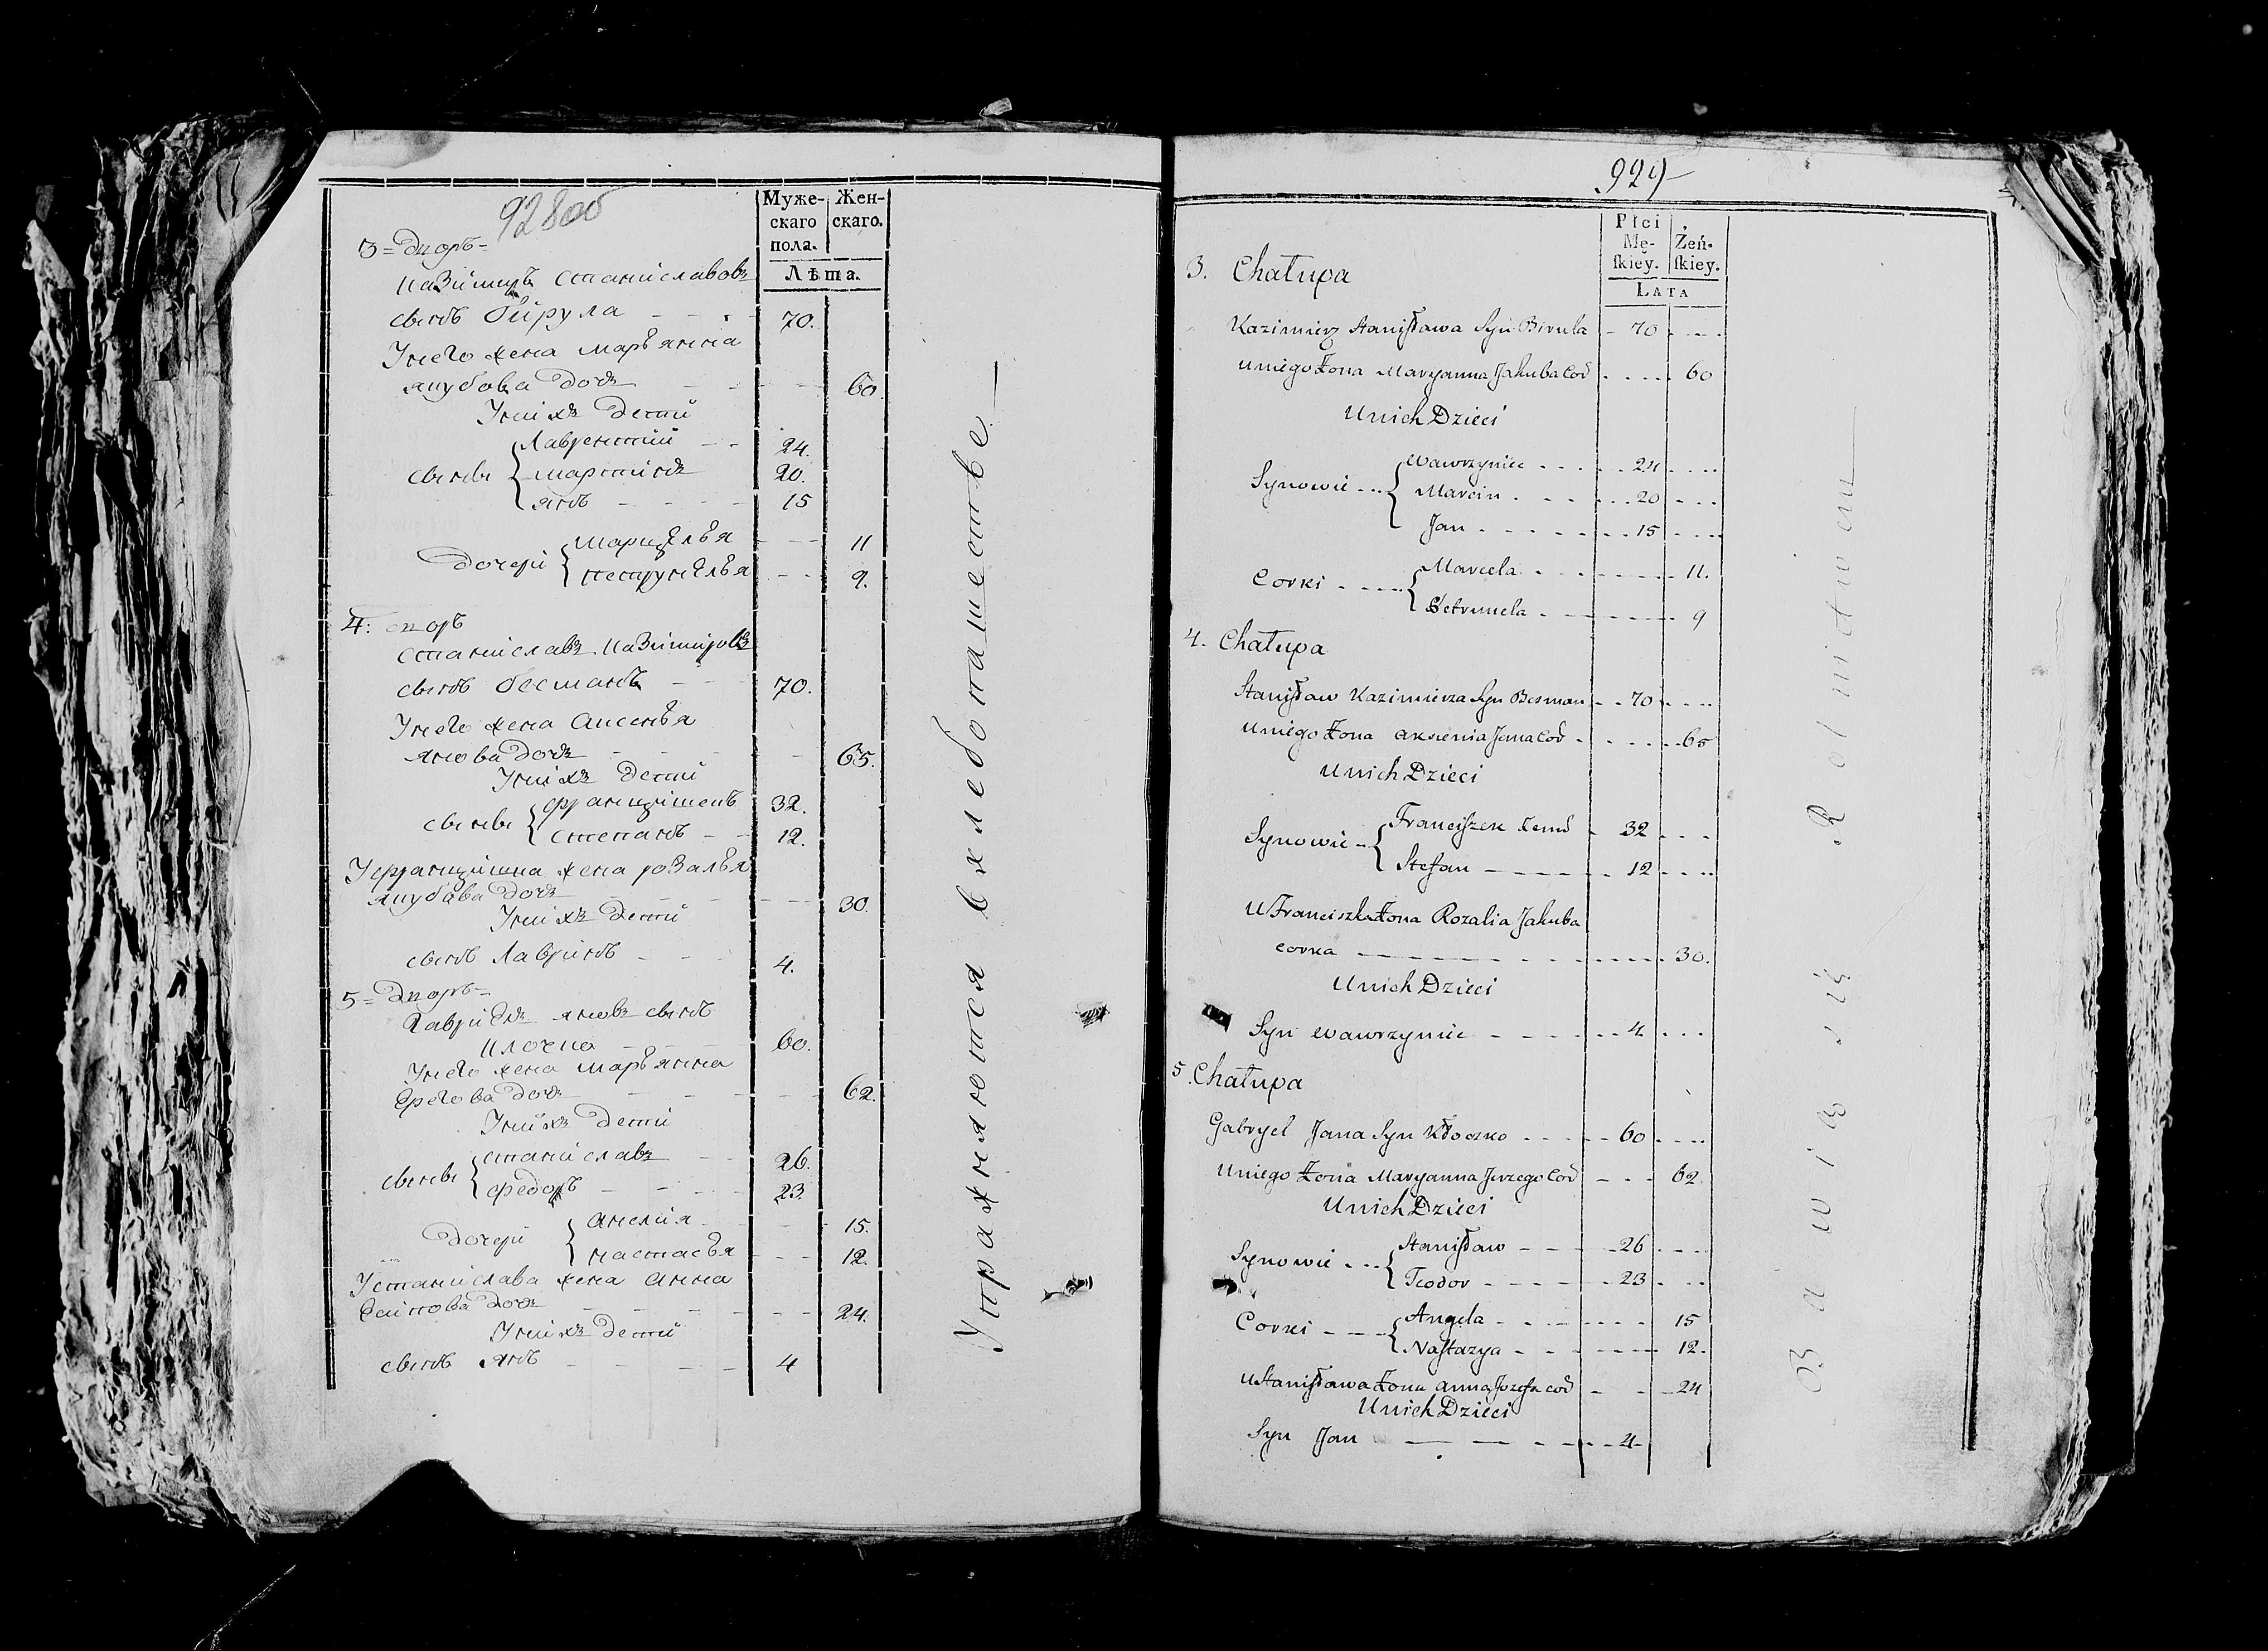 928об
Муже- Жен-
скаго скаго.
пола.
Лѣта.
3 = Дворъ =
Казимиръ Станиславовъ
сынъ Бирула - - - 70.
Унего жена Марьянна
Якубова дочь - - - 60.
Унихъ дети
Лаврентий - - 24.
сыны Мартинъ 20.
Янъ - - - - 15
Марцелья - - - 11
дочери Петрунелья - - 9.
4: Дворъ
Станиславъ Казимировъ
сынъ Бесманъ - - - 70.
Унего жена Аксенья
Янова дочь - - - 65.
Унихъ дети
Францишекъ 32.
сыны Степанъ - - 12.
Уфранцишка жена розалья
Якубова дочь - - - 30.
Унихъ дети
сынъ Лавринъ - - - 4.
5 = Дворъ =
Гавриелъ Яновъ сынъ
Клочко - - - 60.
Унего жена Марьянна
Ерегова дочь - - - 62.
Унихъ дети
Станиславъ - - 26.
сыны Федоръ - - - 23.
Анелия - - - 15.
дочери Настасья - - - 12.
Устанислава жена Анна
Есипова дочь - - - 24.
Унихъ дети
сынъ Янъ - - - - 4
Упражняются вхлебопашестве
929
Płci
Mę- Żeń-
ſkiey. ſkiey.
LATA
3. Chałupa
Kazimierz Staniſława Syn Birula - 70 - - - -
uniego Żona Maryanna Jakuba Cor - - - - 60
Unich Dzieci
Wawrzyniec - - - - - 24 - - - -
Synowie - - - Marcin - - - - - - 20 - - -
Jan - - - - - - - 15 - - - -
Marcela - - - - - - - - 11.
Corki - - - - - Petrunela - - - - - - - 9
4. Chałupa
Staniſław Kazimierza Syn Besman - - 70 - - - -
uniego Żona Aksienia Jana Cor - - - - - 65
Unich Dzieci
Franciſzek Żenı - 32 - - -
Synowie - - Stefan - - - - - - 12 - - - -
U Franciszka Żona Rozalia Jakuba
corka - - - - - - - - - - - - 30.
Unich Dzieci
Syn Wawrzyniec - - - - - - 4 - - -
5. Chałupa
Gabryel Jana Syn Kłoczko - - - - - 60 - - - -
Uniego Żona Maryanna Jerzego Cor - - - 62.
Unich Dzieci
Staniſław - - - - 26 - - - -
Synowie - - - Teodor - - - - - - 23 - - -
Angela - - - - - - - - 15
Corki - - - - Naſtazya - - - - - - - 12.
U Staniſława Żona Anna Jozefa cor - - - 24
Unich Dzieci
Syn Jan - - - - - - - 4 -
Bawią się Rolnictwem